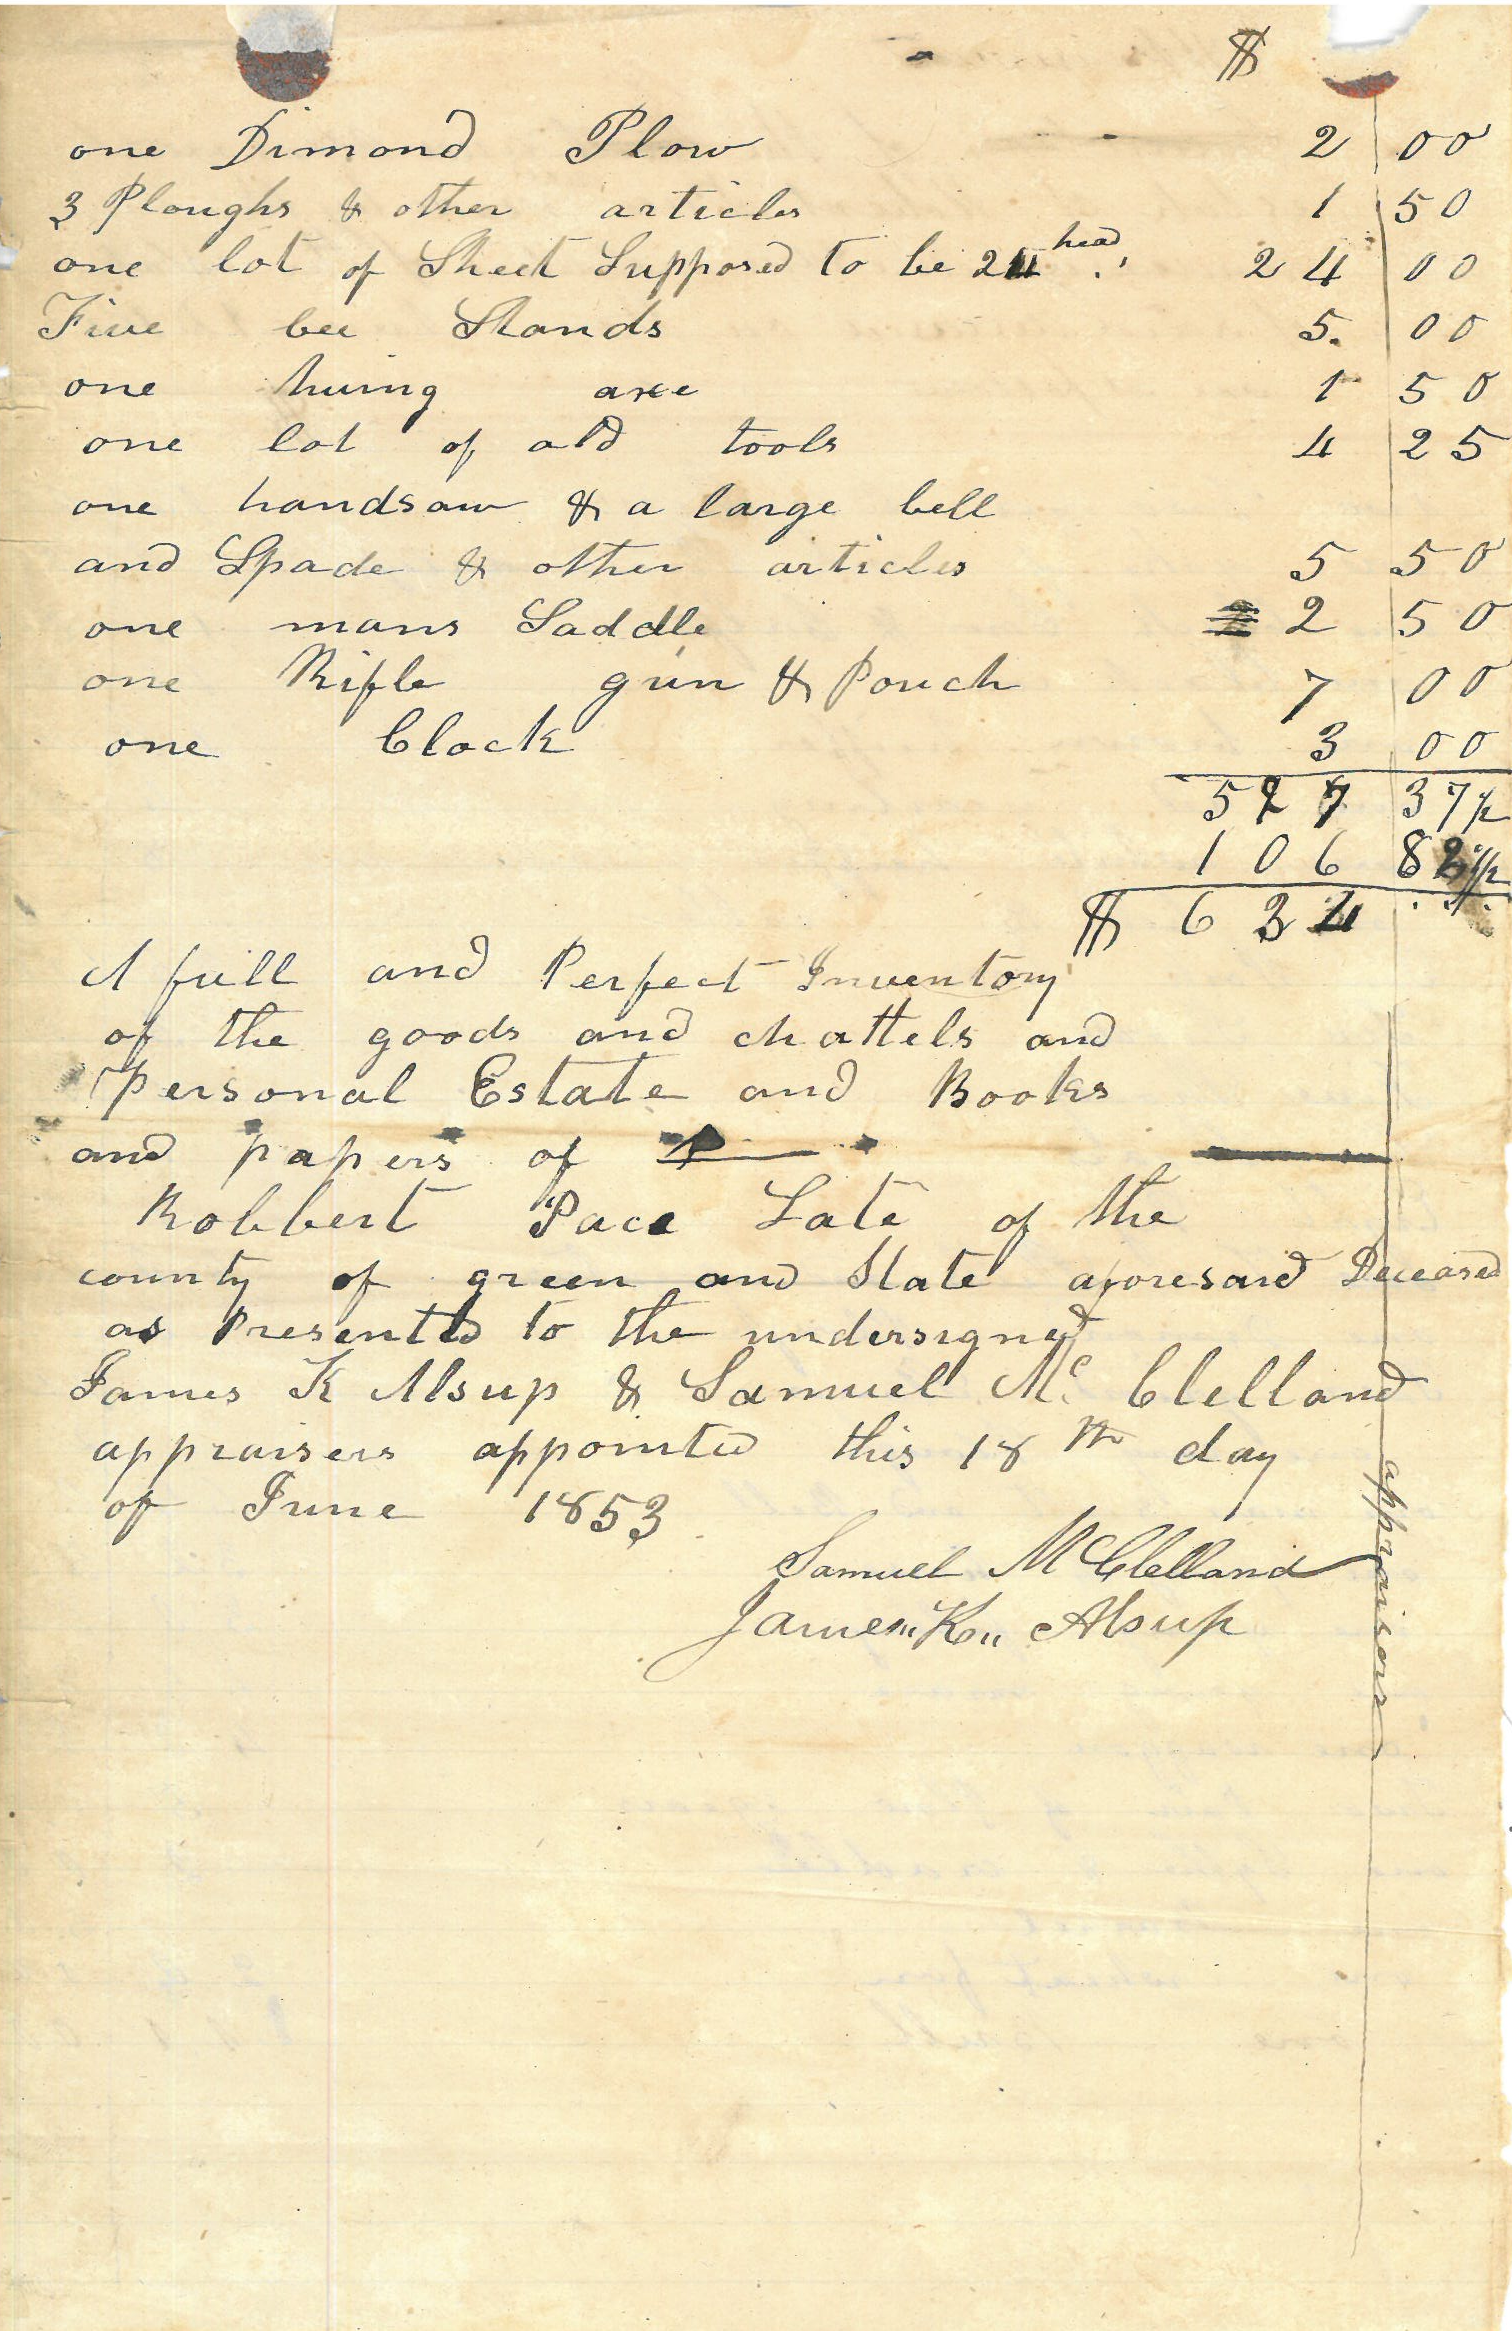 $
one Dimond Plow 2 00
3 Ploughs & other articles 1 50
one lot of Sheet Supposed to be 24 head 24 00
Five bee Stands 5. 00
one huing axe 1 50
one lot of old tools 4 25
one handsaw & a large bell
and Spade & other articles 5 50
one mans Saddle 2 50
one Rifle gun & Pouch 7 00
one Clock 3 00
527 37 1/2
106 82 1/2
$ 634
A full and Perfect Inventory
of the goods and chattels and
Personal Estate and Books
and papers of
Robbert Pace Late of the
county of green and State aforesaid Deceased
as Presented to the undersigned
James K Alsup & Samuel Mc Clelland
appraisers appointed this 18th day
of June 1853
Samuel McClelland
James "K" Alsup
appraisers